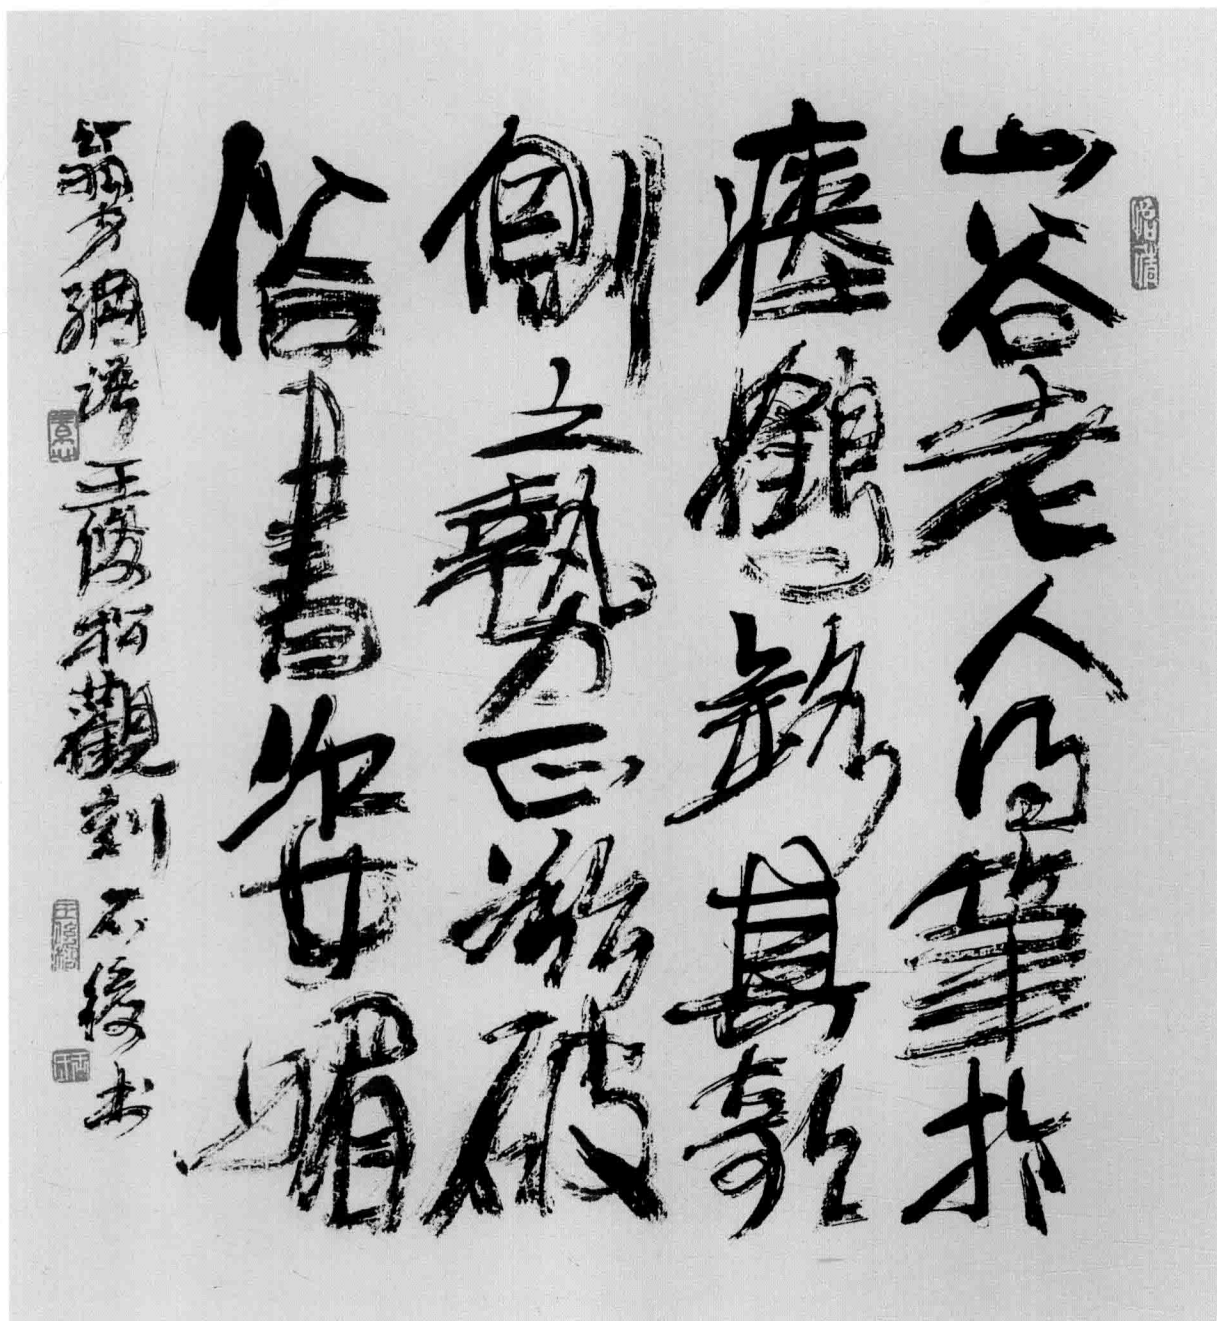 山谷老人得筆於
瘞鶴銘其欹
側之勢正欲破
俗書姿媚
翁方綱語王俊松觀刻石後书